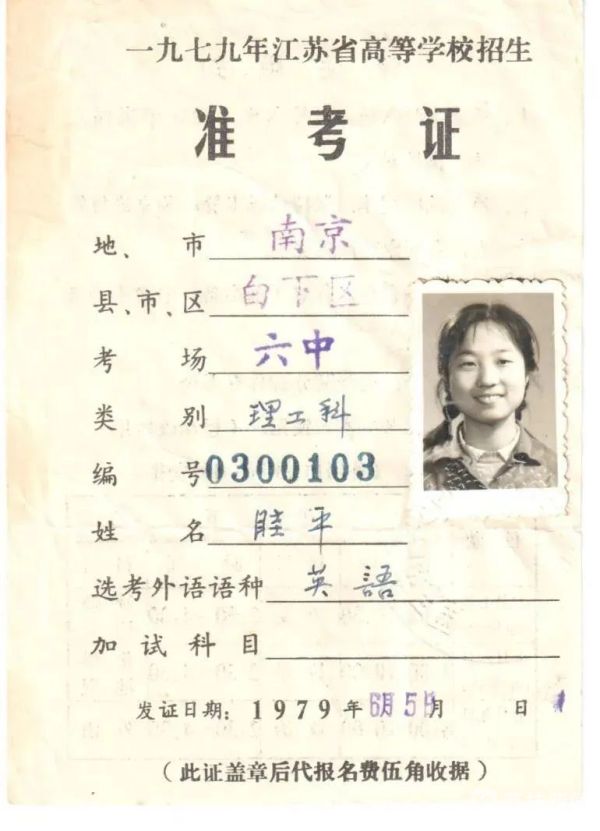 一九七九年江苏省高等学校招生
准考证
地、市 南京
县、市、区 白下区
考场 六中
类别 理工科
编号 0300103
姓名 眭平
选考外语语种 英語
加试科目
发证日期：1979年6月5日月 日
（此证盖章后代报名费伍角收据）